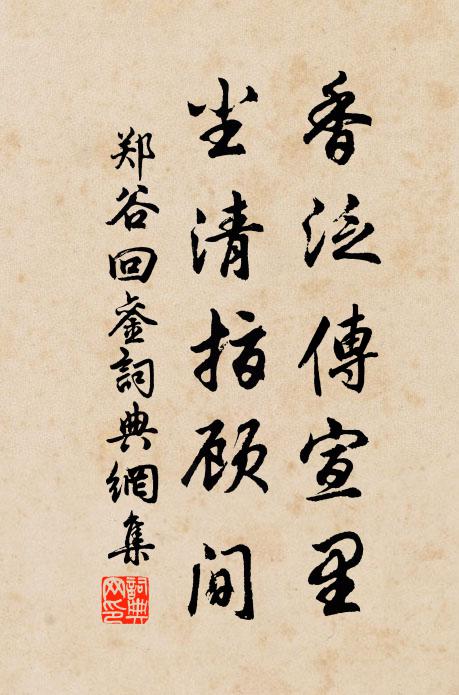 香泛傳宣里
尘清指顾间
郑谷回銮詞典網集
詞典网印